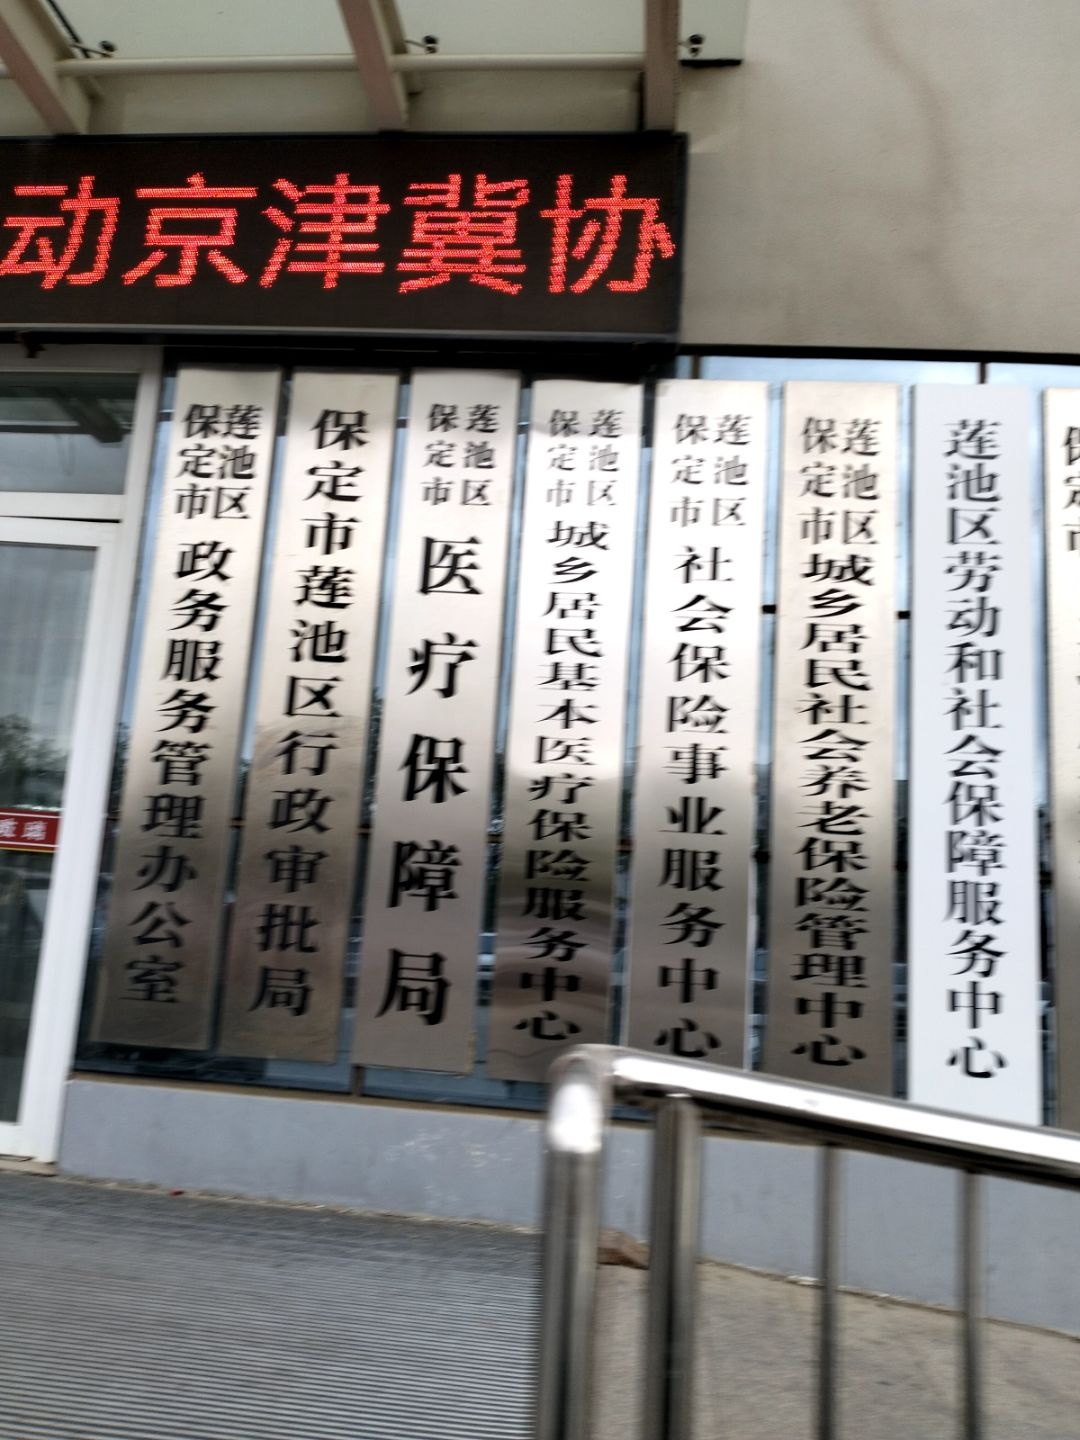 动京津冀协
保定市莲池区政务服务管理办公室
保定市莲池区行政审批局
保定市莲池区医疗保障局
保定市莲池区城乡居民基本医疗保险服务中心
保定市莲池区社会保险事业服务中心
保定市莲池区城乡居民社会养老保险管理中心
莲池区劳动和社会保障服务中心